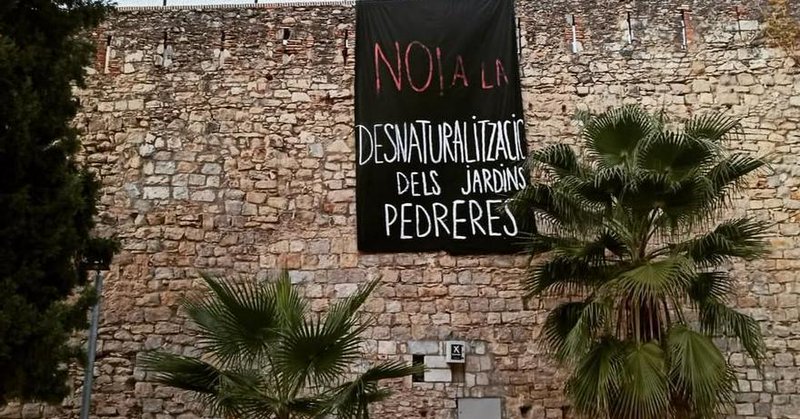 NO! A LA
DESNATURALITZACIÓ
DELS JARDINS
PEDRERES